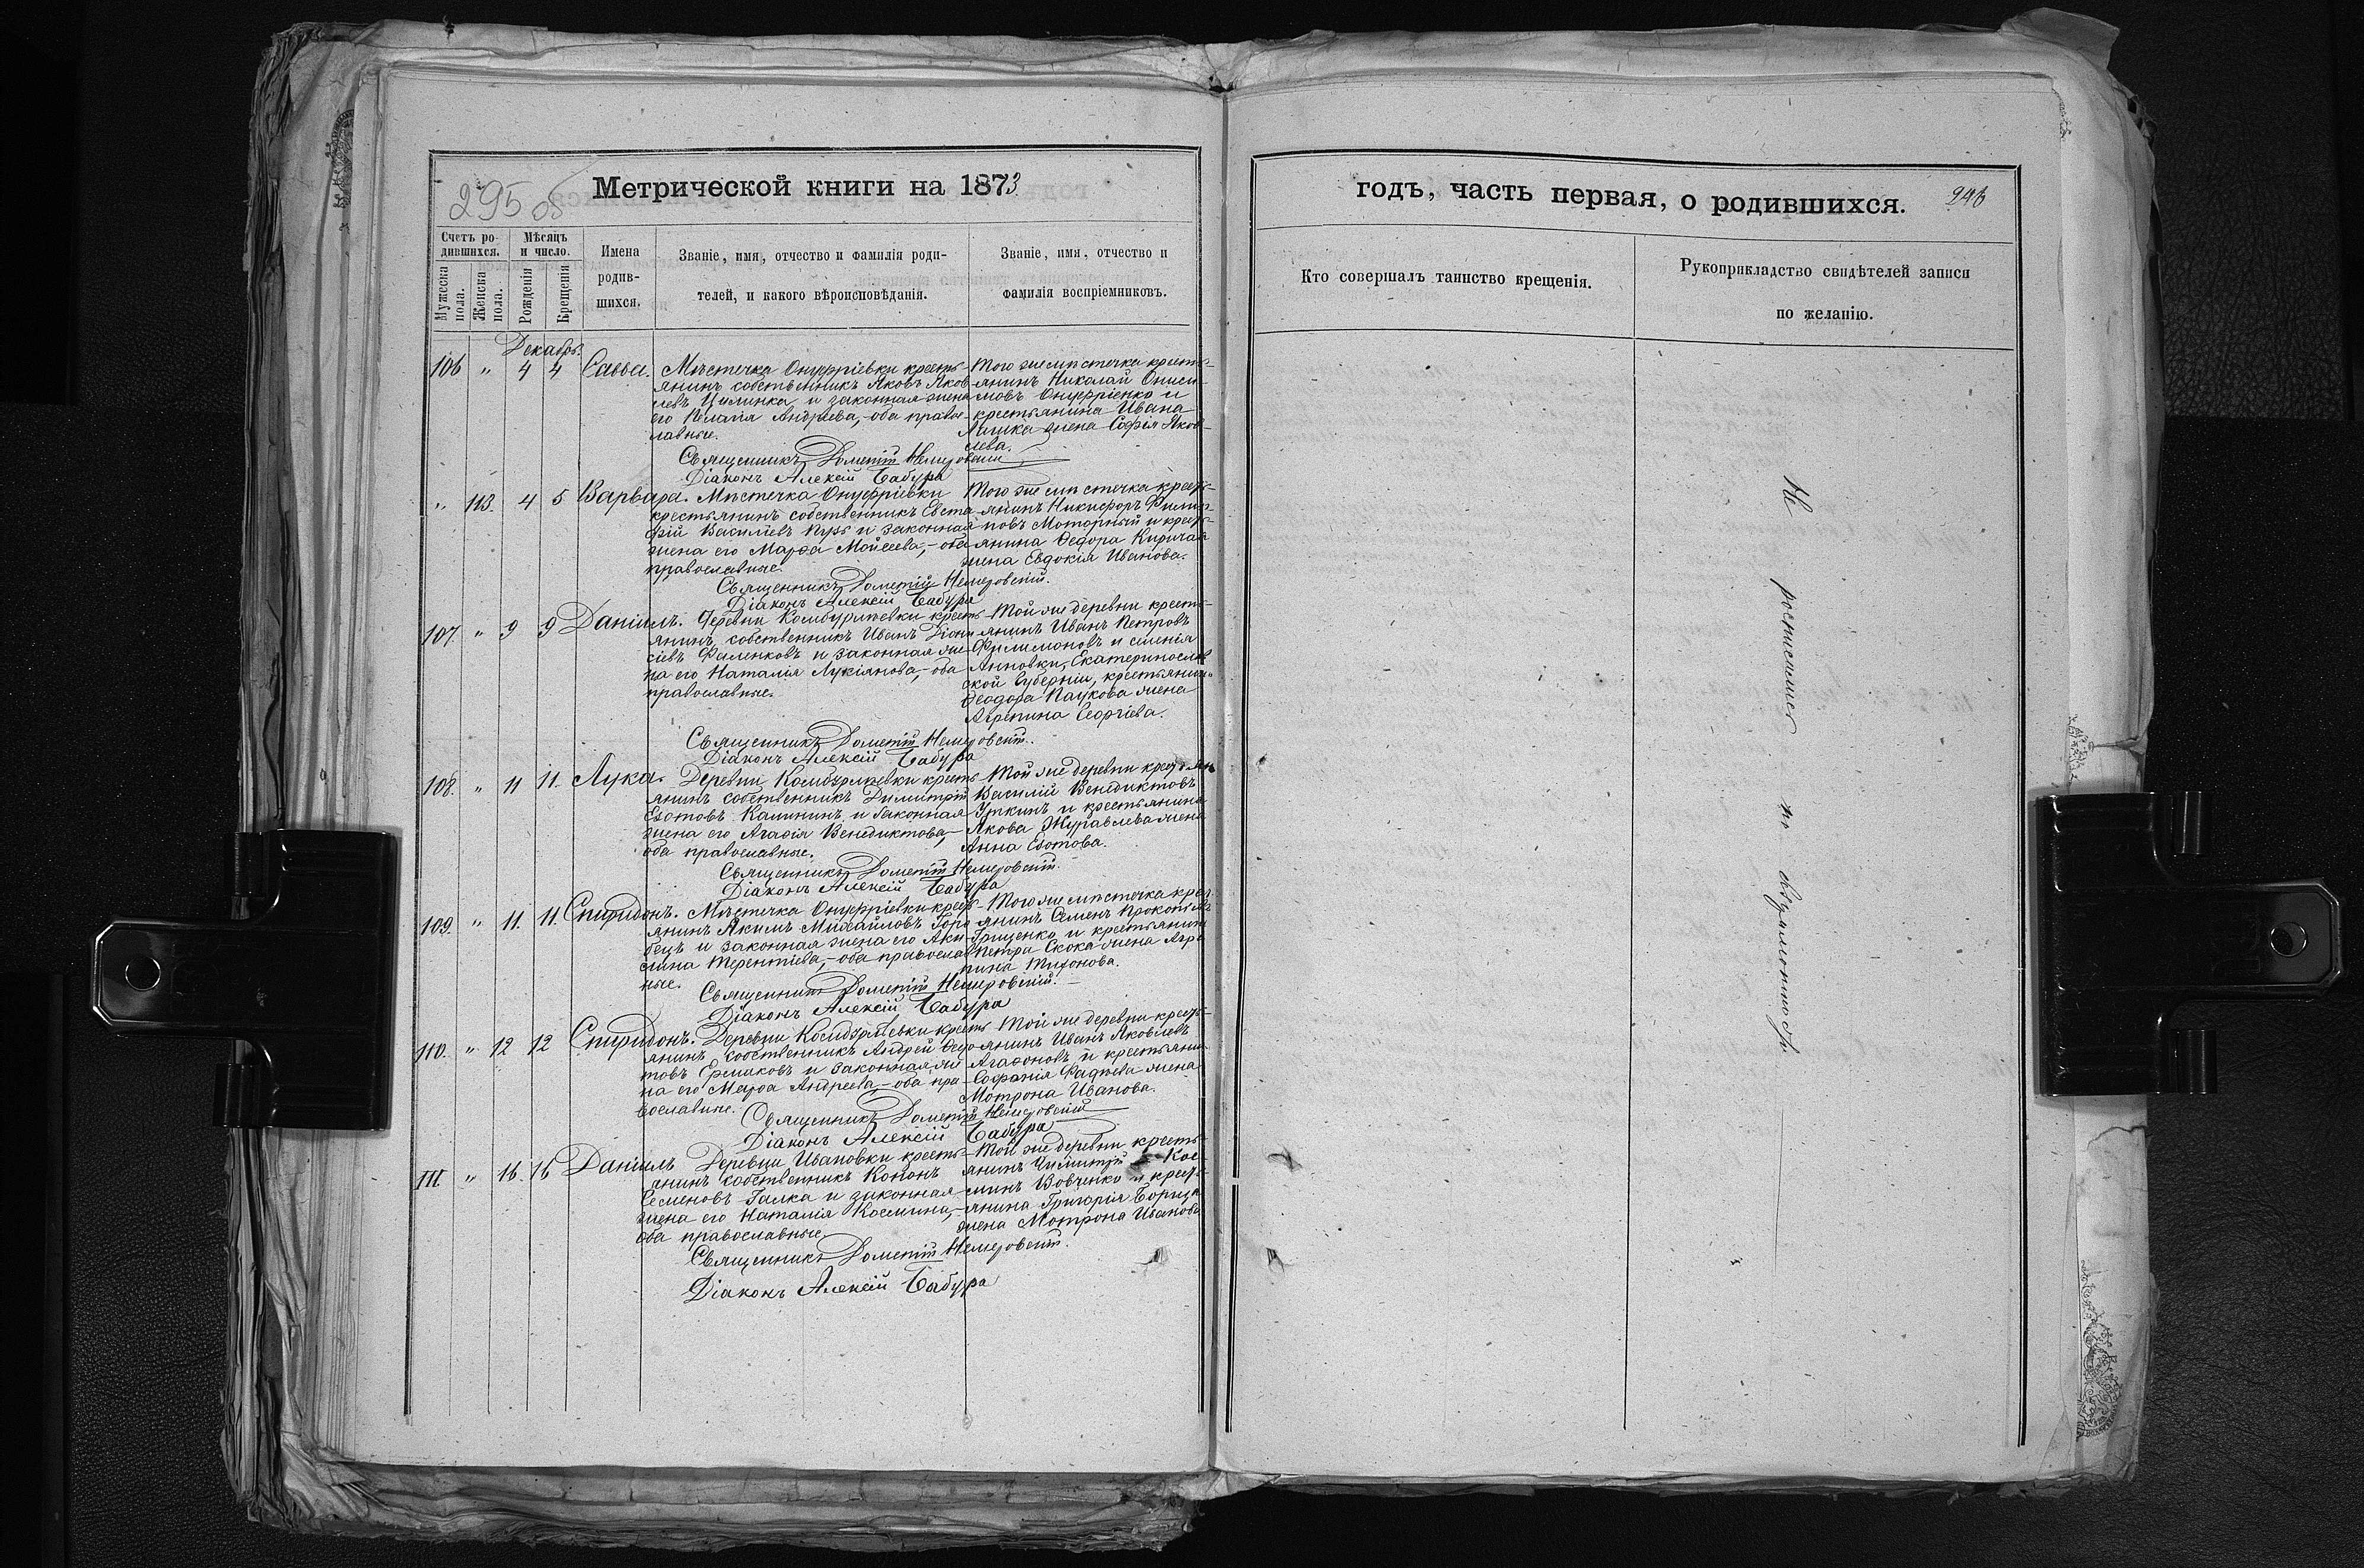 Метрической книги на 1873
295 об
Счетъ ро-
дившихся.
Мужеска
пола.
Женска
пола.
Мѣсяцъ
и число.
Рожденія
Крещенія
Имена
родив-
шихся.
Званіе, имя, отчество и фамилія роди-
телей, и какого вѣроисповѣданія.
Званіе, имя, отчество и
фамилія воспріемниковъ.
Декабрь.
106 " 4 4 Савва.
Мѣстечка Онуфріевки кресть-
янинъ собственникъ Яковъ Яков-
левъ и законная жена
его Пелагія Андреева,- оба право-
славные.
Того же мѣстечка кресть-
янинъ Николай Ониси-
мовъ Онуфріенко и
крестьянина Ивана
жена Софія Яков-
лева.
Священникъ Дометій
Діаконъ Алексій Бабура
" 113. 4 5 Варвара.
Мѣстечка Онуфріевки
крестьянинъ собственникъ Евста-
фій Василіевъ и законная
жена его Марфа Моисеева,- оба
православные.
Того же мѣстечка кресть-
янинъ Никифоръ Филип-
повъ Моторный и кресть-
янина Ѳедора
жена Евдокія Иванова.
Священникъ Дометій
Діаконъ Алексій Бабура
107. " 9 9 Даніилъ.
Деревни Камбурлѣевки кресть-
янинъ собственникъ Иванъ Діони-
сіевъ Фаленковъ и законная же-
на его Наталія Лукіянова,- оба
православные.
Той же деревни кресть-
янинъ Иванъ Петровъ
Филимоновъ и имѣнія
Анновки, Екатеринослав
ской Губерніи, крестьянина
Ѳеодора Паукова жена
Агрепина Георгіева.
Священникъ Дометій
Діаконъ Алексій Бабура
108. " 11 11. Лука.
Деревни Камбурлѣевки кресть-
янинъ собственникъ Димитрій
Калининъ и законная
жена его Агафія Венедиктова,-
оба православные.
Той же деревни крестьян
Василій Венедиктовъ
Уткинъ и крестьянина
Якова Журавлева жена
Анна
Священникъ Дометій
Діаконъ Алексій Бабура
109. " 11. 11. Спиридонъ.
Мѣстечка Онуфріевки кресть-
янинъ Акимъ Михайловъ Горо-
бецъ и законная жена его Аки-
лина Терентіева,- оба православ
ные.
Того же мѣстечка крест
янинъ Семенъ Прокопіевъ
Грищенко и крестьянина
Петра Скока жена Агре
пина Тихонова.
Священникъ Дометій
Діаконъ Алексій Бабура
110. " 12 12 Спиридонъ.
Деревни Камбурлѣевки кресть-
янинъ собственникъ Андрей Ѳедо-
товъ Ермаковъ и законная же-
на его Марфа Андреева,- оба пра-
вославные.
Той же деревни кресть-
янинъ Иванъ Яковлевъ
Агафоновъ и крестьянина
Софонія Фадѣева жена
Мотрона Иванова.
Священникъ Дометій
Діаконъ Алексій Бабура
111. " 16. 16 Даніилъ
Деревни Ивановки кресть-
янинъ собственникъ Кононъ
Семеновъ Галка и законная
жена его Наталія Космина,-
оба православные
Той же деревни кресть-
янинъ Димитрій Кос-
минъ Вовченко и кресть-
янина Григорія
жена Мотрона Иванова
Священникъ Дометій
Діаконъ Алексій Бабура
годъ, часть первая, о родившихся.
246
Кто совершалъ таинство крещенія.
Рукоприкладство свидѣтелей записи
по желанію.
Не по безграмотности.